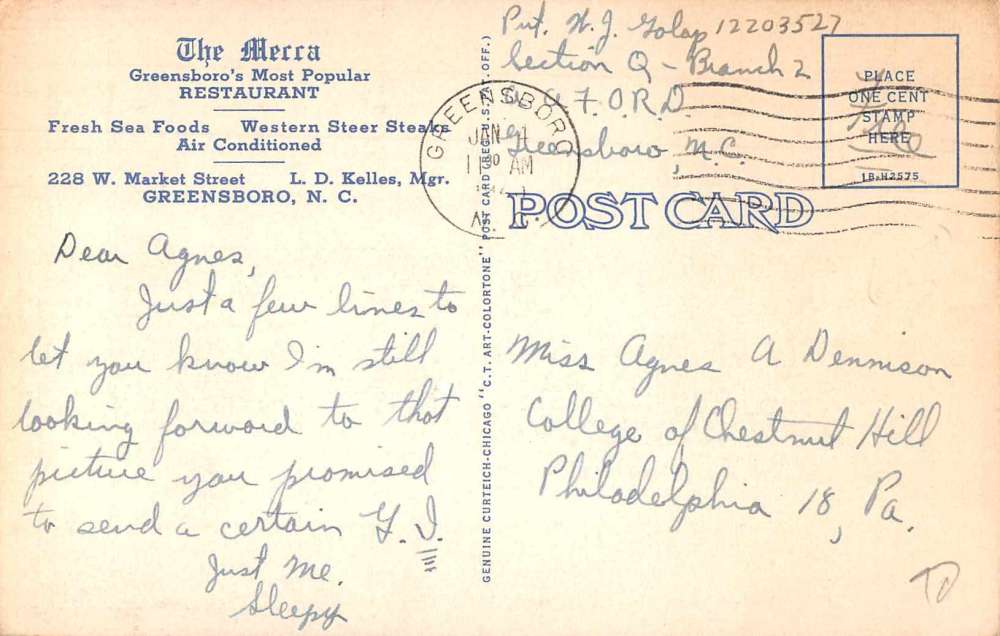 The Mecca
Greensboro's Most Popular
RESTAURANT
Fresh Sea Foods Western Steer Steaks
Air Conditioned
228 W. Market Street L. D. Kelles, Mgr.
GREENSBORO, N. C.
Dear Agnes,
Just a few lines to
let you know I'm still
looking forward to that
picture you promised
to send a certain G.I.
Just Me.
Sleepy
GENUINE CURTEICH-CHICAGO "C. T. ART-COLORTONE" POST CARD (REG. U. S. PAT. OFF.)
Pvt. W. J. Golap 12203527
Section Q - Branch 2
O.R.D.
Greensboro, N.C.
GREENSBORO
JAN
11 30 AM
PLACE
ONE CENT
STAMP
HERE
Free
1B-H2575
POST CARD
Miss Agnes A Dennison
College of Chestnut Hill
Philadelphia 18, Pa.